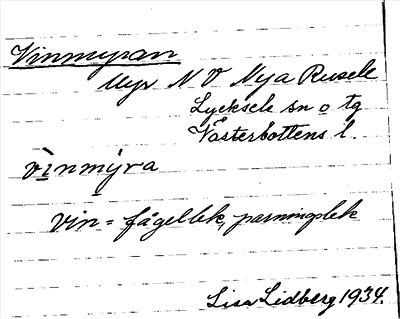 Vinmyran
Myr N V Nya Rusele
Lycksele sn o tg
Västerbottens l.
vìnmýra
vin = fågellek, parningslek
Lisa Lidberg 1934.